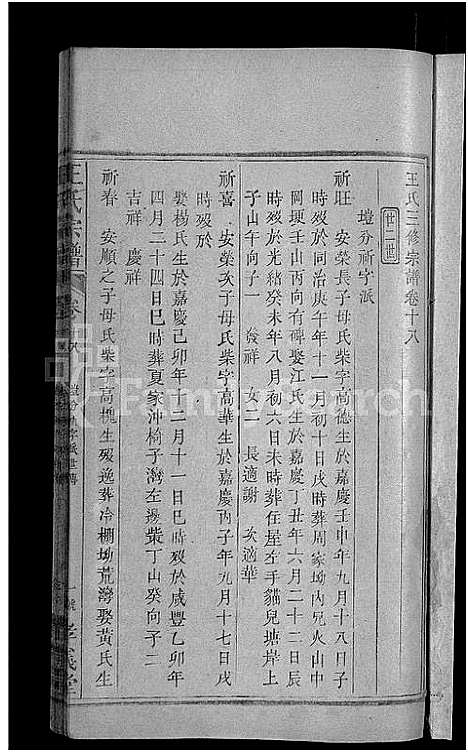 王氏三修宗譜卷十八
廿二世
壋分祈字派
祈旺 安榮長子母氏柴字高德生於嘉慶壬申年九月十八日子
時歿於同治庚午年十一月初十日戌時葬周家坳內兄火山中
岡埂壬山丙向有碑娶江氏生於嘉慶丁丑年六月二十二日辰
時歿於光緒癸未年八月初六日未時葬在屋左手貓兒塘岸上
子山午向子一 發祥 女二 長適謝 次適華
祈喜 安榮次子母氏柴字高華生於嘉慶丙子年九月十七日戌
時歿於
娶楊氏生於嘉慶己卯年十二月十一日巳時歿於咸豐乙卯年
四月二十四日巳時葬夏家沖椅子灣左邊柴丁山癸向子二
吉祥 慶祥
祈春 安順之子母氏柴字高槐生歿逸葬冷棚坳荒灣娶黃氏生
王氏宗譜
卷
孝義堂
FamilySearch